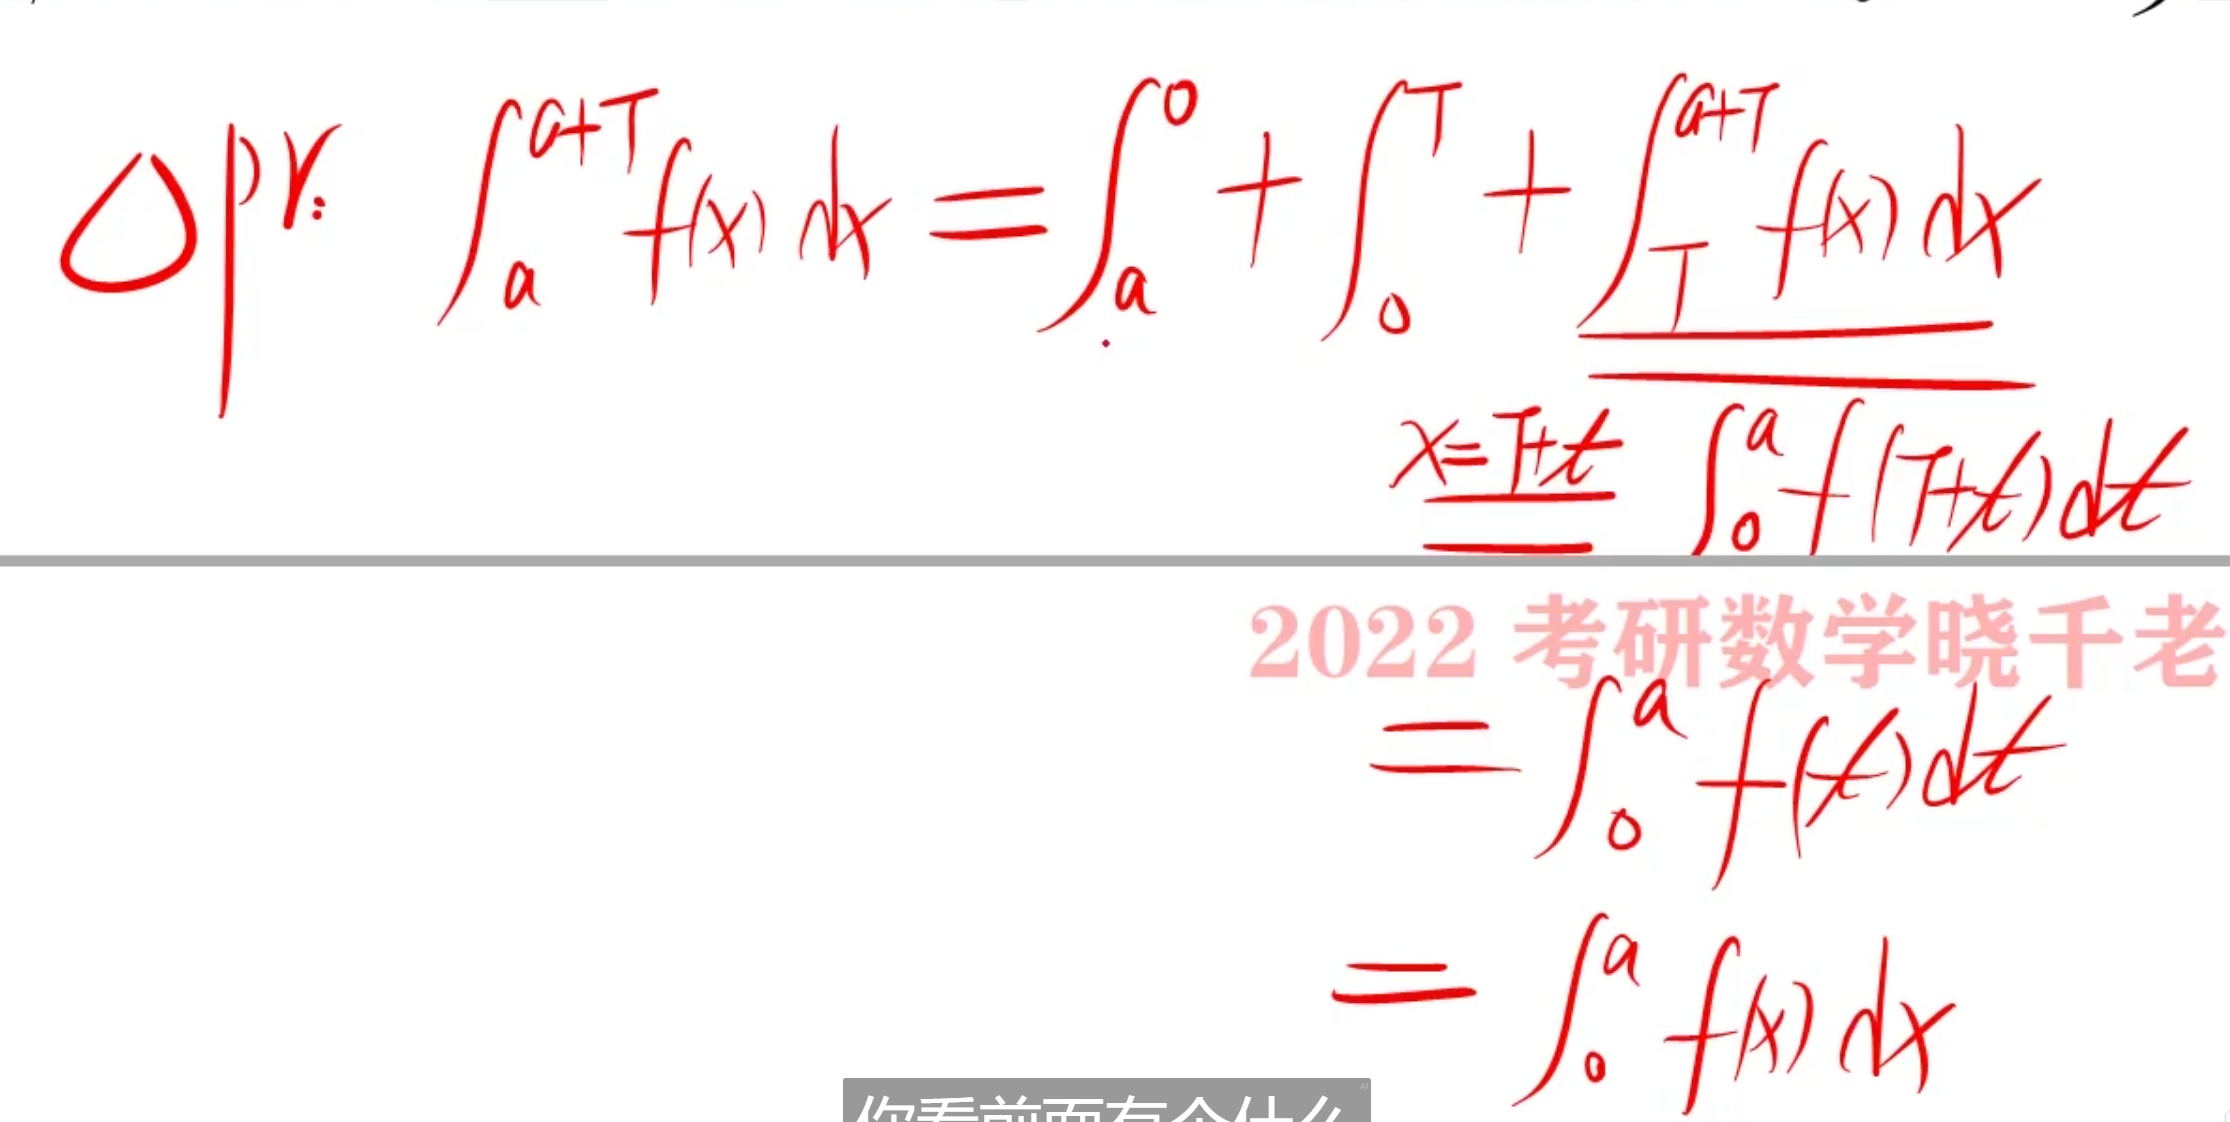 Opr: ∫_a^{a+T} f(x) dx = ∫_a^0 + ∫_0^T + ∫_T^{a+T} f(x) dx
x=T+t ∫_0^a f(T+t) dt
2022 考研数学晓千老
= ∫_0^a f(t) dt
= ∫_0^a f(x) dx
你看前面有个什么